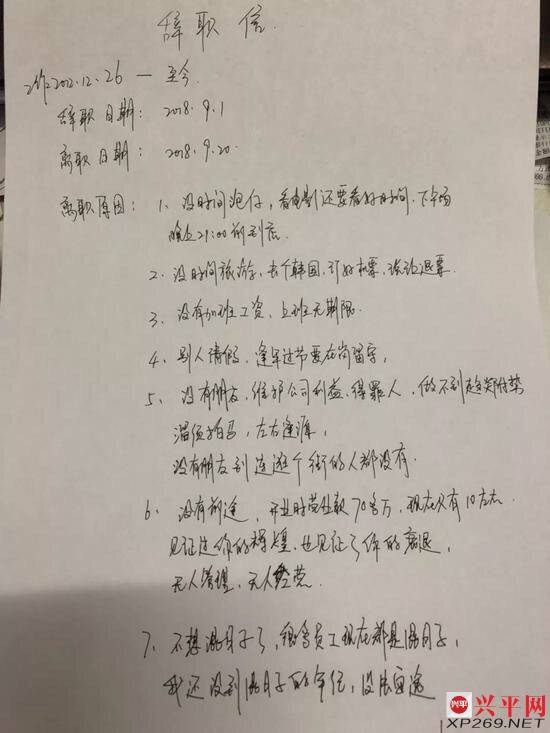 辞职信
工作2012.12.26 — 至今.
辞职日期: 2018.9.1
离职日期: 2018.9.20.
离职原因: 1、没时间泡仔,看电影还要看好时间.下午场
晚上21:00前到底.
2、没时间旅游,去个韩国,订好机票,说退票
3、没有加班工资,上班无期限.
4、别人请假,逢年过节要在岗留守,
5、没有朋友,维护公司利益、得罪人,做不到趋炎附势
溜须拍马,左右逢源,
没有朋友到连逛个街的人都没有.
6、没有前途,开业时营业款70多万,现在只有10左右
见证过你的辉煌,也见证了你的衰退,
无人管理,无人经营.
7、不想混日子了,很多员工现在都是混日子,
我还没到混日子的年纪,没法留
兴平 兴平网
XP269.NET